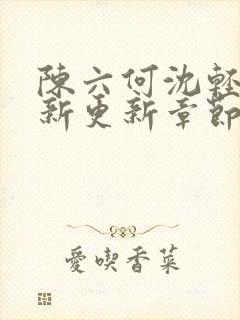 陳六何沈輕
新更新章節
愛喫香菜